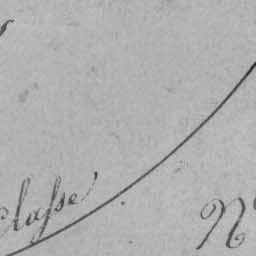 classe
N°